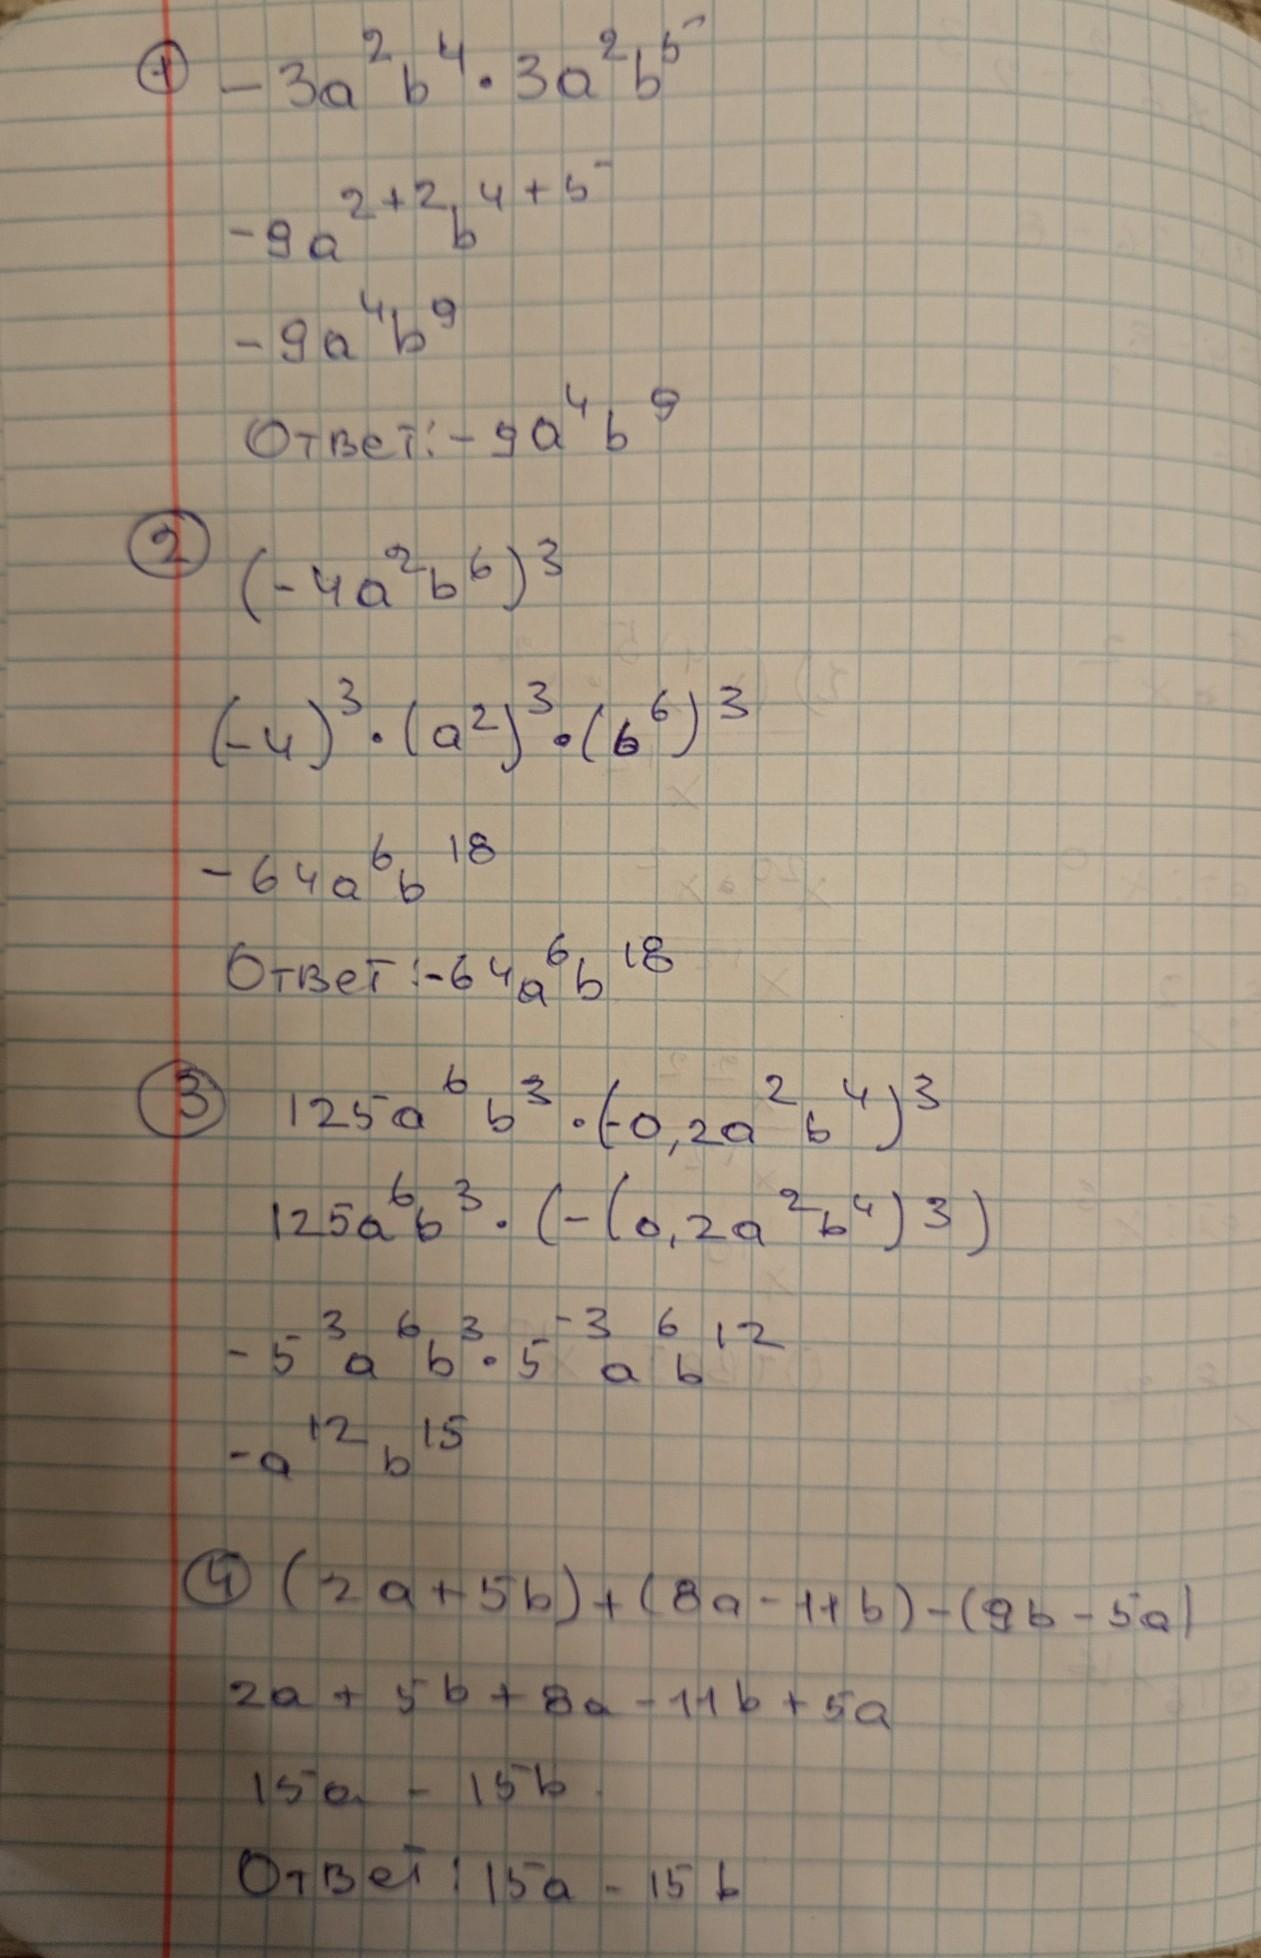 ① -3a²b⁴·3a²b⁵
-9a²⁺²b⁴⁺⁵
-9a⁴b⁹
Ответ: -9a⁴b⁹
② (-4a²b⁶)³
(-4)³·(a²)³·(b⁶)³
-64a⁶b¹⁸
Ответ: -64a⁶b¹⁸
③ 125a⁶b³·(-0,2a²b⁴)³
125a⁶b³·(-(0,2a²b⁴)3)
-5³a⁶b³·5⁻³a⁶b¹²
-a¹²b¹⁵
④ (2a+5b)+(8a-11b)-(9b-5a)
2a+5b+8a-11b+5a
15a-15b
Ответ: 15a-15b